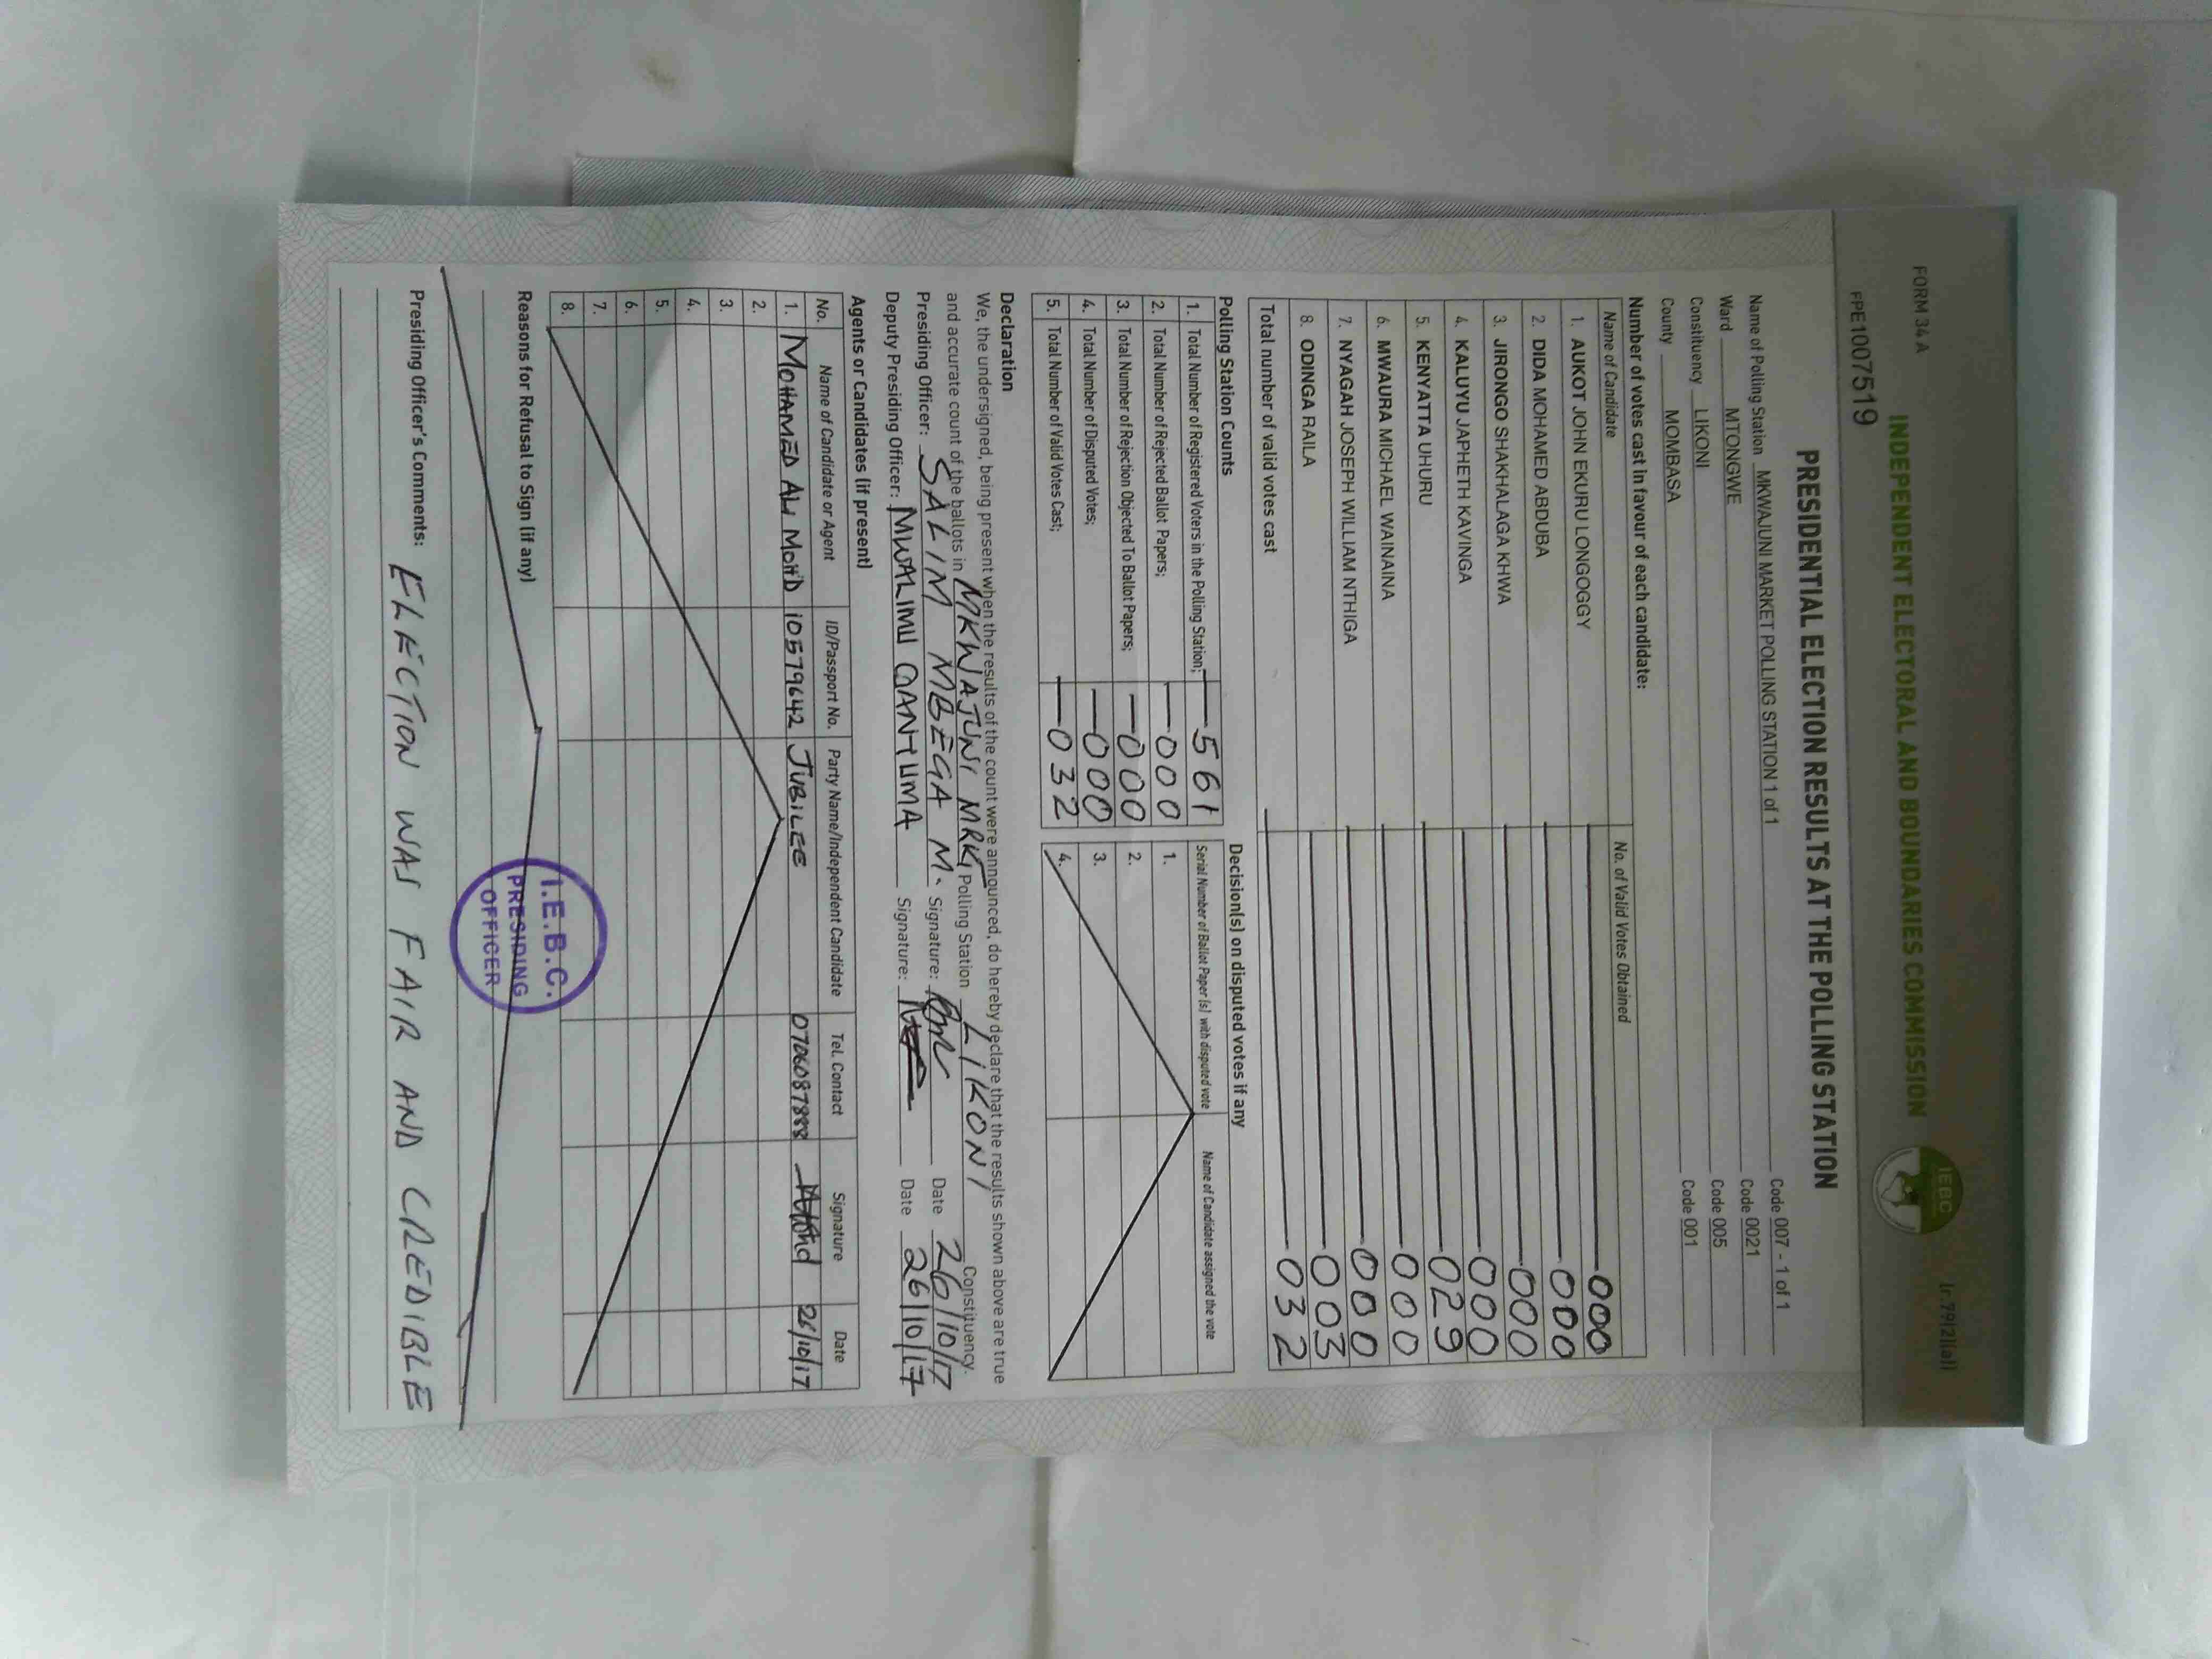 FORM 34 A
(r.79(2)(a))
INDEPENDENT ELECTORAL AND BOUNDARIES COMMISSION
IEBC
FPE1007519
PRESIDENTIAL ELECTION RESULTS AT THE POLLING STATION
Name of Polling Station MKWAJUNI MARKET POLLING STATION 1 of 1 Code 007 - 1 of 1
Ward MTONGWE Code 0021
Constituency LIKONI Code 005
County MOMBASA Code 001
Number of votes cast in favour of each candidate:
Name of Candidate No. of Valid Votes Obtained
1. AUKOT JOHN EKURU LONGOGGY 000
2. DIDA MOHAMED ABDUBA 000
3. JIRONGO SHAKHALAGA KHWA 000
4. KALUYU JAPHETH KAVINGA 000
5. KENYATTA UHURU 029
6. MWAURA MICHAEL WAINAINA 000
7. NYAGAH JOSEPH WILLIAM NTHIGA 000
8. ODINGA RAILA 003
Total number of valid votes cast 032
Polling Station Counts
1. Total Number of Registered Voters in the Polling Station; 561
2. Total Number of Rejected Ballot Papers; 000
3. Total Number of Rejection Objected To Ballot Papers; 000
4. Total Number of Disputed Votes; 000
5. Total Number of Valid Votes Cast; 032
Decision(s) on disputed votes if any
Serial Number of Ballot Paper (s) with disputed vote Name of Candidate assigned the vote
1.
2.
3.
4.
Declaration
We, the undersigned, being present when the results of the count were announced, do hereby declare that the results shown above are true
and accurate count of the ballots in MKWAJUNI MRKT Polling Station LIKONI Constituency.
Presiding Officer: SALIM MBEGA M. Signature: Date 26/10/17
Deputy Presiding Officer: MWALIMU Signature: Date 26/10/17
Agents or Candidates (if present)
No. Name of Candidate or Agent ID/Passport No. Party Name/Independent Candidate Tel. Contact Signature Date
1. MOHAMED ALI MOHD 10579642 JUBILEE 0706087888 26/10/17
2.
3.
4.
5.
6.
7.
8.
Reasons for Refusal to Sign (if any)
I.E.B.C.
PRESIDING
OFFICER
Presiding Officer's Comments: ELECTION WAS FAIR AND CREDIBLE